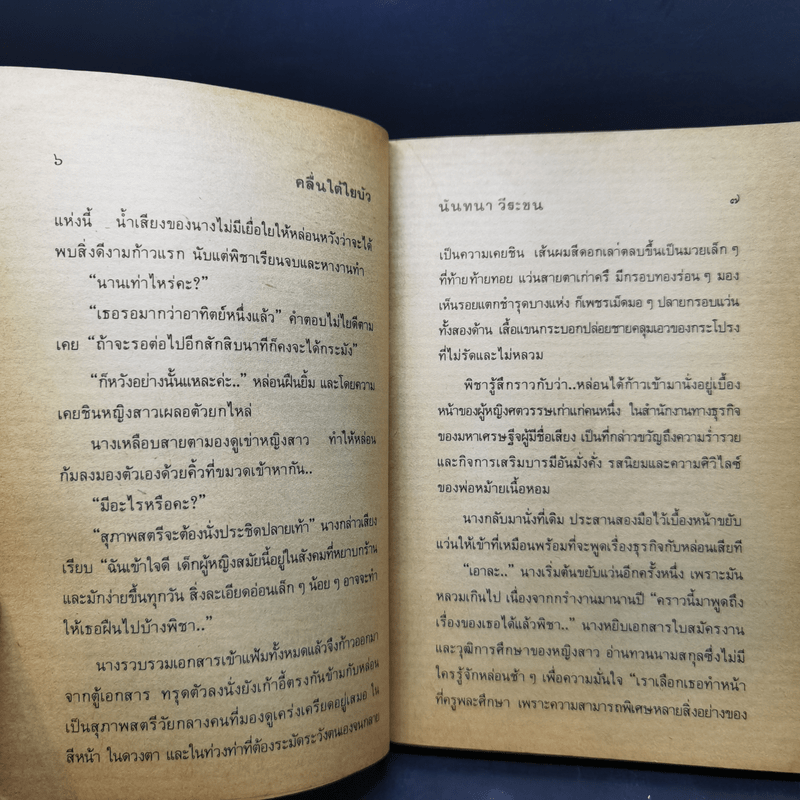 ๖
คลื่นใต้ใยบัว
แห่งนี้ น้ำเสียงของนางไม่มีเยื่อใยให้หล่อนหวังว่าจะได้
พบสิ่งดีงามก้าวแรก นับแต่พิชาเรียนจบและหางานทำ
“นานเท่าไหร่คะ?”
“เธอรอมากว่าอาทิตย์หนึ่งแล้ว” คำตอบไม่ไยดีตาม
เคย “ถ้าจะรอต่อไปอีกสักสิบนาทีก็คงจะได้กระมัง”
“ก็หวังอย่างนั้นแหละค่ะ..” หล่อนฝืนยิ้ม และโดยความ
เคยชินหญิงสาวเผลอตัวยกไหล่
นางเหลือบสายตามองดูเข่าหญิงสาว ทำให้หล่อน
ก้มลงมองตัวเองด้วยคิ้วที่ขมวดเข้าหากัน..
“มีอะไรหรือคะ?”
“สุภาพสตรีจะต้องนั่งประชิดปลายเท้า” นางกล่าวเสียง
เรียบ “ฉันเข้าใจดี เด็กผู้หญิงสมัยนี้อยู่ในสังคมที่หยาบกร้าน
และมักง่ายขึ้นทุกวัน สิ่งละเอียดอ่อนเล็ก ๆ น้อย ๆ อาจจะทำ
ให้เธอฝืนไปบ้างพิชา..”
นางรวบรวมเอกสารเข้าแฟ้มทั้งหมดแล้วจึงก้าวออกมา
จากตู้เอกสาร ทรุดตัวลงนั่งยังเก้าอี้ตรงกันข้ามกับหล่อน
เป็นสุภาพสตรีวัยกลางคนที่มองดูเคร่งเครียดอยู่เสมอ ใน
สีหน้า ในดวงตา และในท่วงท่าที่ต้องระมัดระวังตนเองจนกลาย
นันทนา วีระชน
๗
เป็นความเคยชิน เส้นผมสีดอกเลาตลบขึ้นเป็นมวยเล็ก ๆ
ที่ท้ายท้ายทอย แว่นสายตาเก่าครึ มีกรอบทองร่อน ๆ มอง
เห็นรอยแตกชำรุดบางแห่ง ก็เพชรเม็ดมอ ๆ ปลายกรอบแว่น
ทั้งสองด้าน เสื้อแขนกระบอกปล่อยชายคลุมเอวของกระโปรง
ที่ไม่รัดและไม่หลวม
พิชารู้สึกราวกับว่า..หล่อนได้ก้าวเข้ามานั่งอยู่เบื้อง
หน้าของผู้หญิงศตวรรษเก่าแก่คนหนึ่ง ในสำนักงานทางธุรกิจ
ของมหาเศรษฐีผู้มีชื่อเสียง เป็นที่กล่าวขวัญถึงความร่ำรวย
และกิจการเสริมบารมีอันมั่งคั่ง รสนิยมและความศิวิไลซ์
ของพ่อหม้ายเนื้อหอม
นางกลับมานั่งที่เดิม ประสานสองมือไว้เบื้องหน้าขยับ
แว่นให้เข้าที่เหมือนพร้อมที่จะพูดเรื่องธุรกิจกับหล่อนเสียที
“เอาละ..” นางเริ่มต้นขยับแว่นอีกครั้งหนึ่ง เพราะมัน
หลวมเกินไป เนื่องจากกรำงานมานานปี “คราวนี้มาพูดถึง
เรื่องของเธอได้แล้วพิชา..” นางหยิบเอกสารใบสมัครงาน
และวุฒิการศึกษาของหญิงสาว อ่านทวนนามสกุลซึ่งไม่มี
ใครรู้จักหล่อนช้า ๆ เพื่อความมั่นใจ “เราเลือกเธอทำหน้า
ที่ครูพละศึกษา เพราะความสามารถพิเศษหลายสิ่งอย่างของ